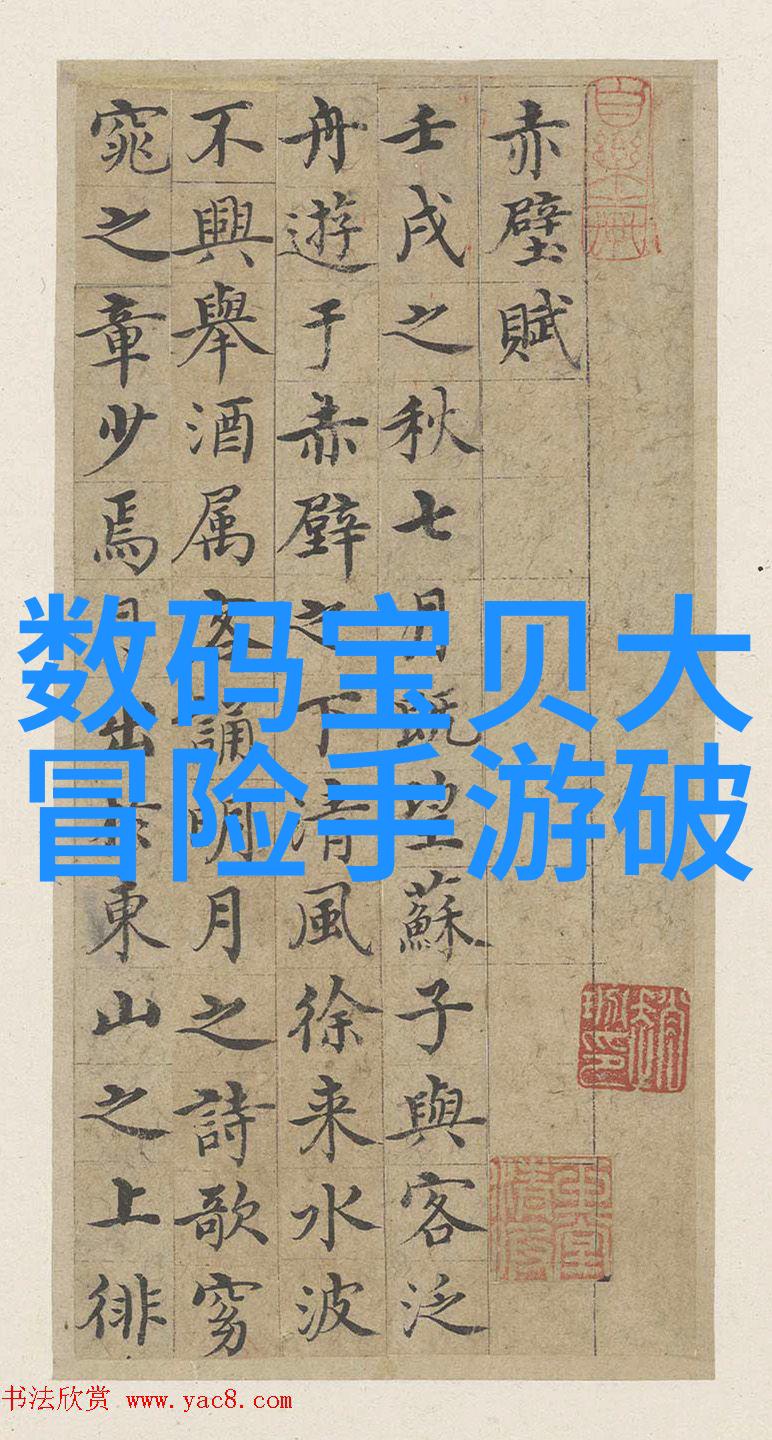 赤壁賦
壬戌之秋七月既望蘇子與客泛
舟遊于赤壁之下清風徐来水波
不興舉酒属客誦明月之詩歌窈
窕之章少焉月出於東山之上徘
数码宝贝大
冒险手游破
书法欣赏 www.yac8.com